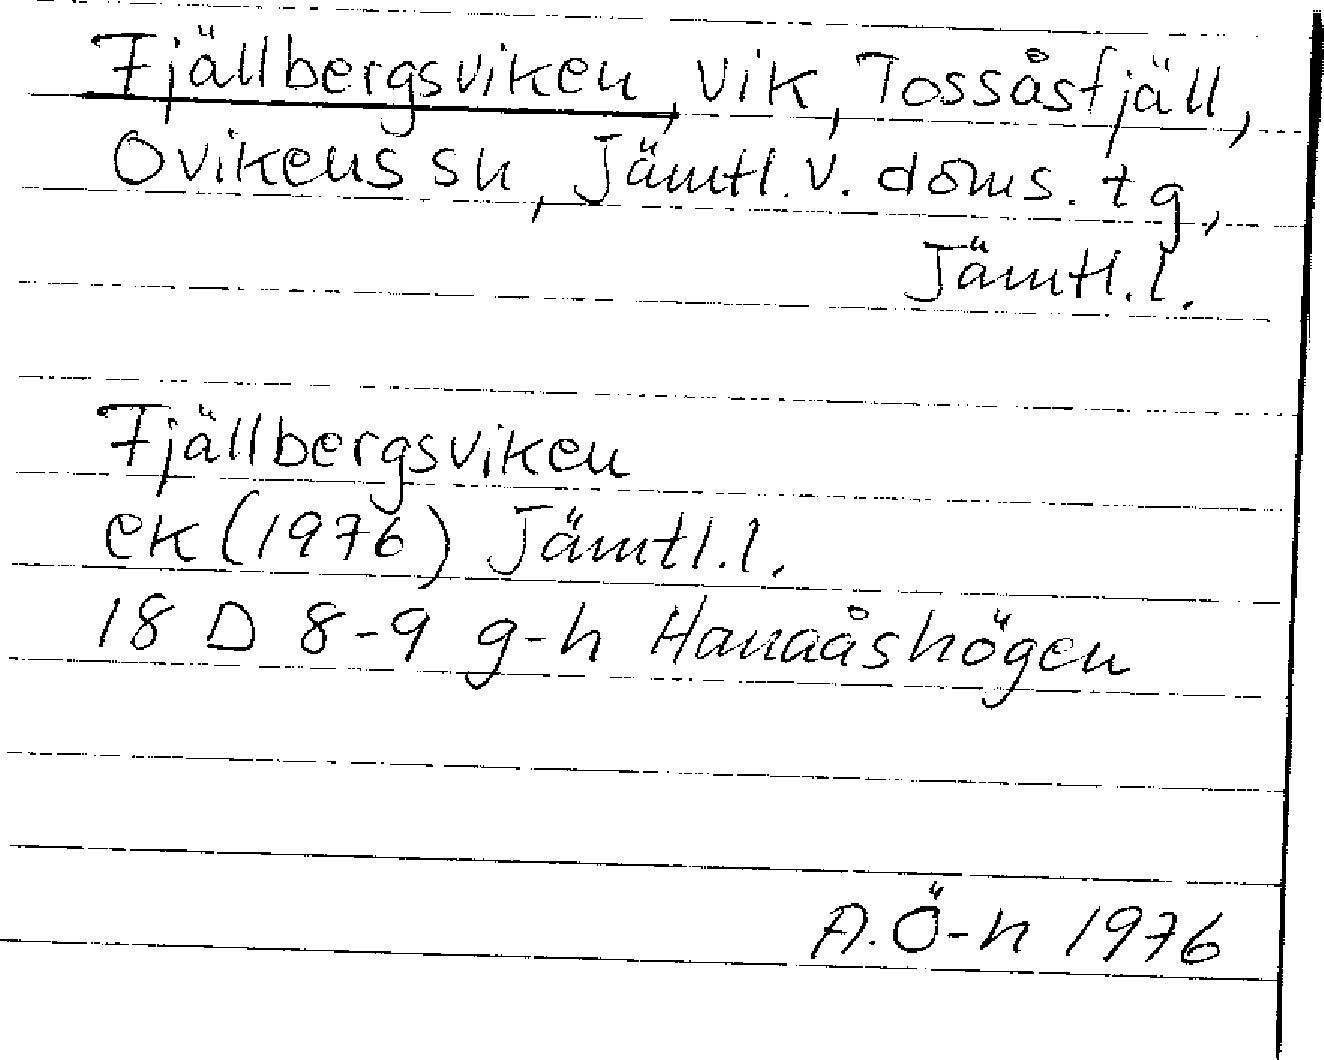 Fjällbergsviken, vik, Tossåsfjäll,
Ovikens sn, Jämtl. v. doms. tg,
Jämtl. l.
Fjällbergsviken
ek (1976) Jämtl. l.
18 D 8-9 g-h Hanaåshögen
A. Ö-n 1976